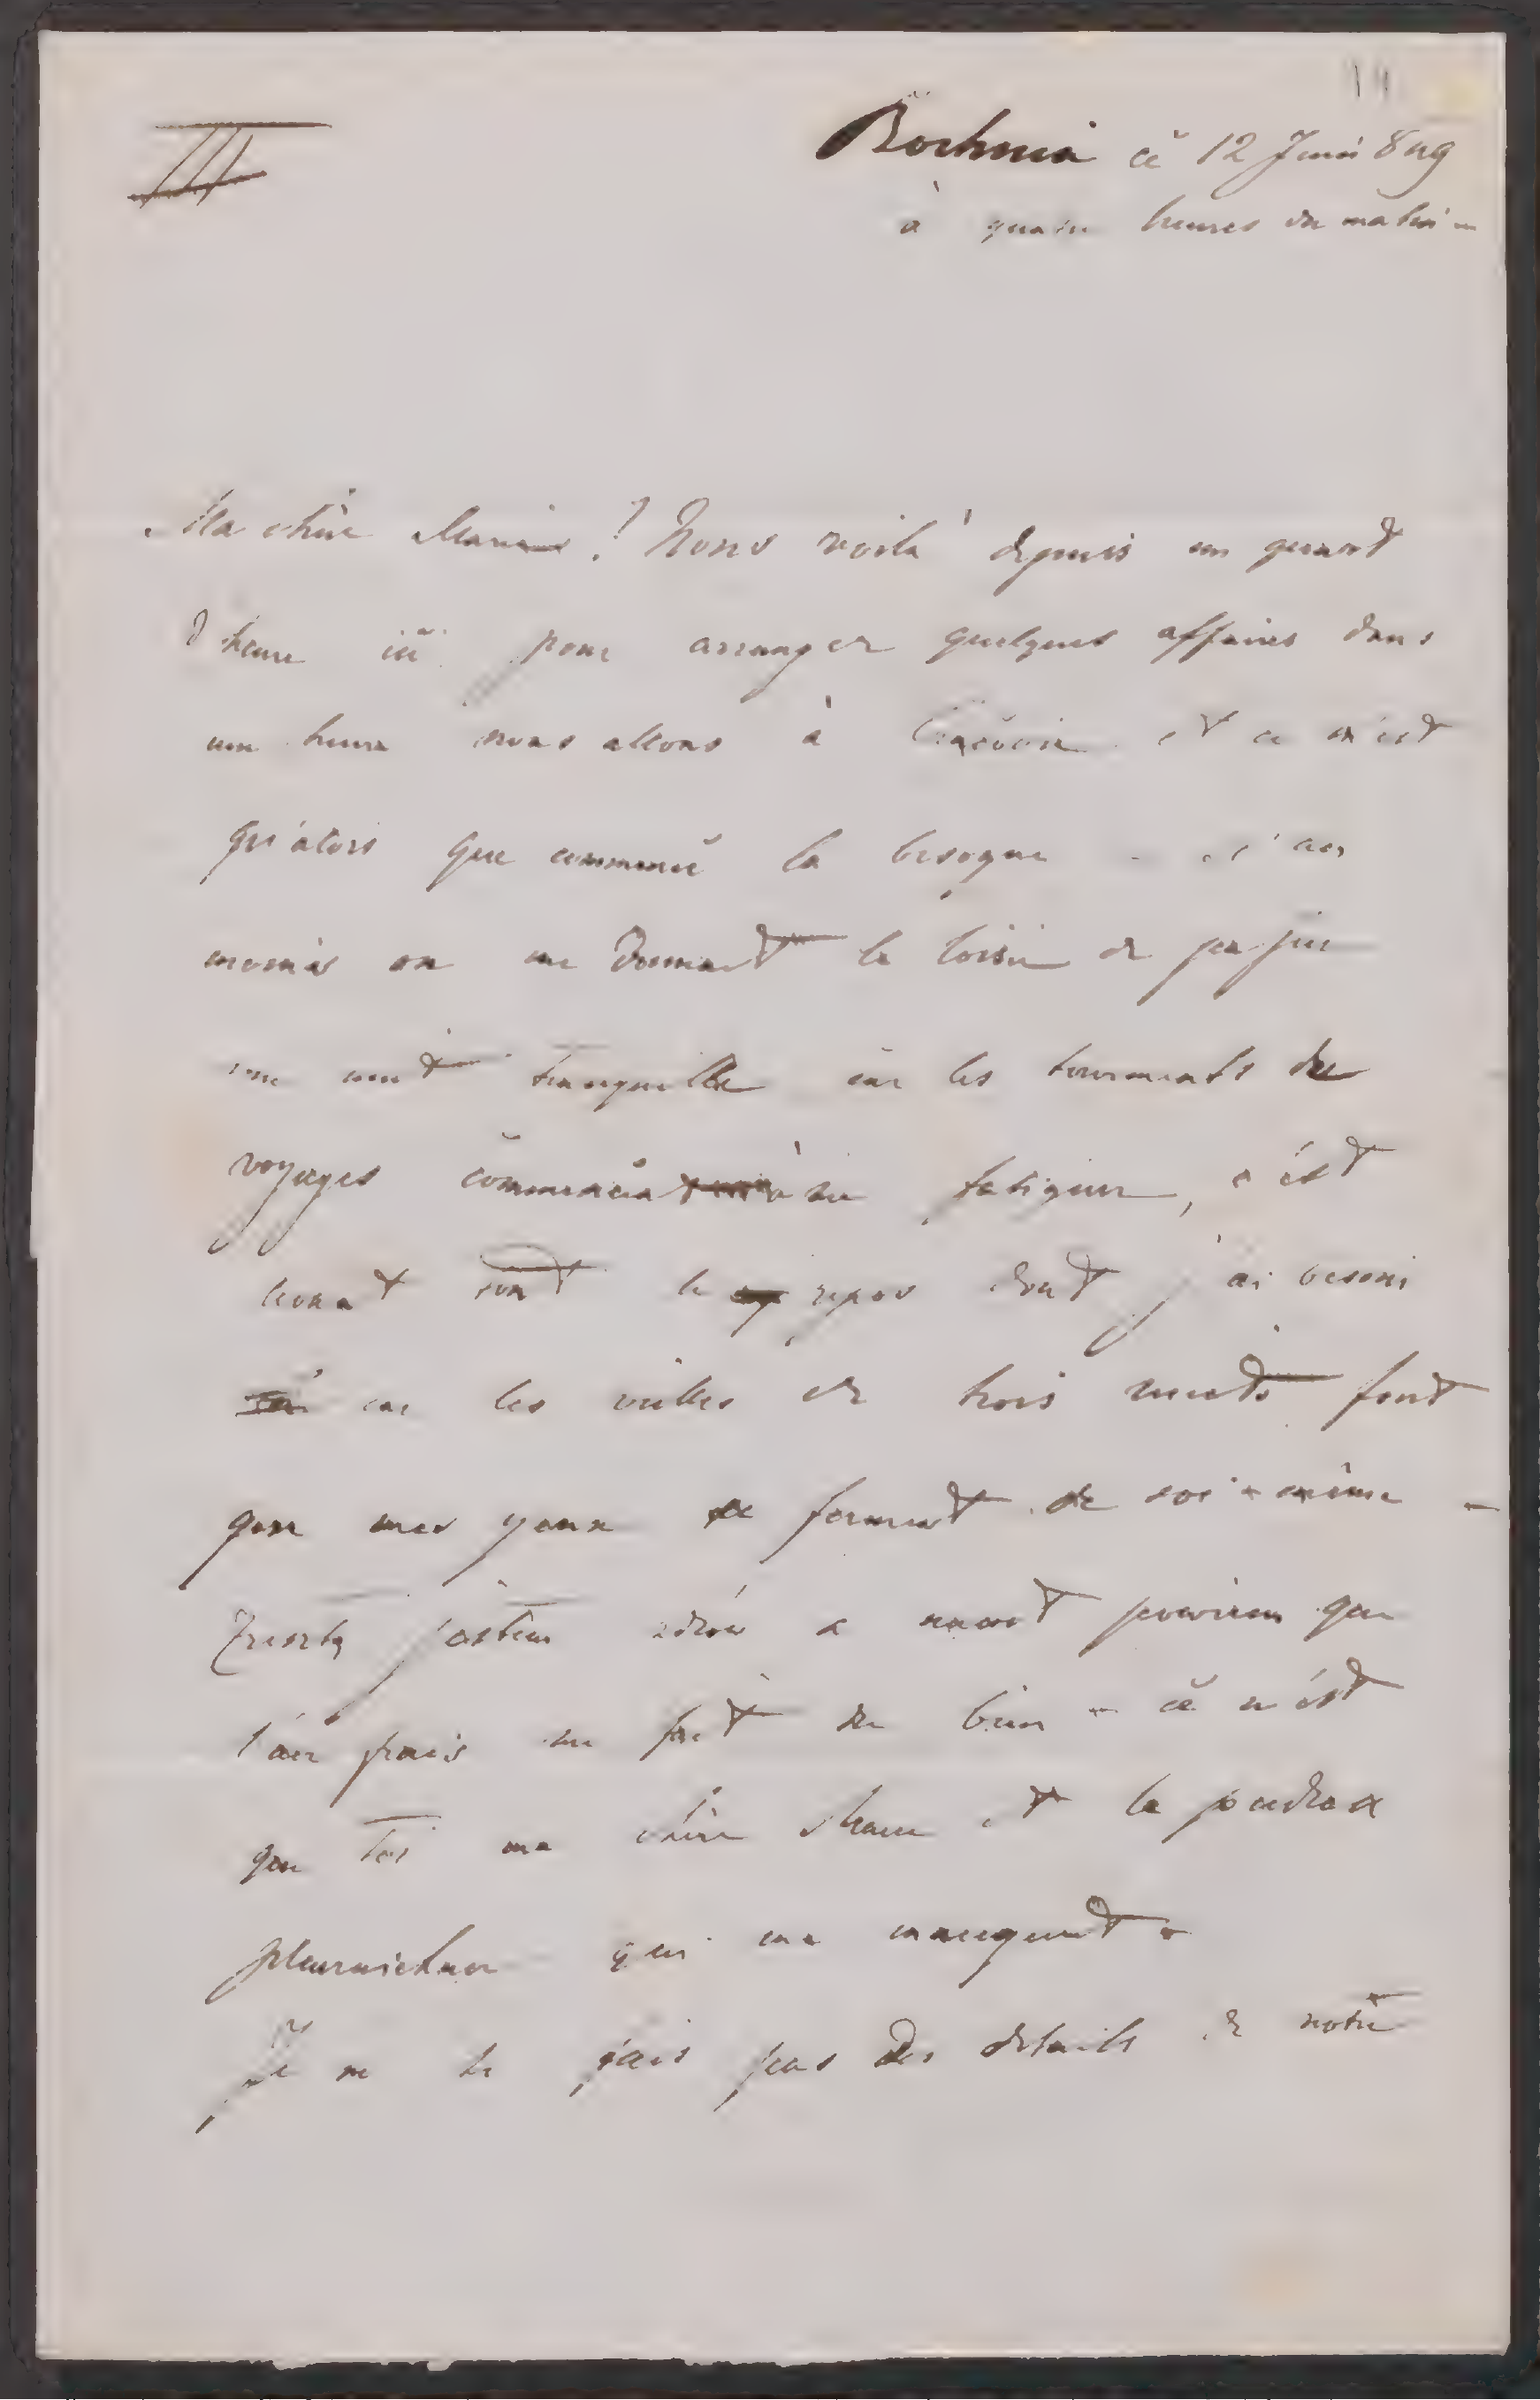 14
III
Bochnia ce 12 Juin 849
à quatre heures du matin -
Ma chère Marie! Nous voilà depuis un quart
d'heure ici pour arranger quelques affaires dans
une heure nous allons à Cracovie et ce n'est
qu'alors que commence la besogne - si au
moins on me donnait le loisir de passer
une nuit tranquille car les tourments du
voyages à me fatiguer, c'est
le repos dont j'ai besoin
car les veilles de trois nuits font
que mes yeux se ferment de soi-même -
Zresztą jestem zdrów a nawet que
l'air frais me fait du bien - ce n'est
que toi ma chère et la
qui me manquent -
Je ne te fais pas des details de notre